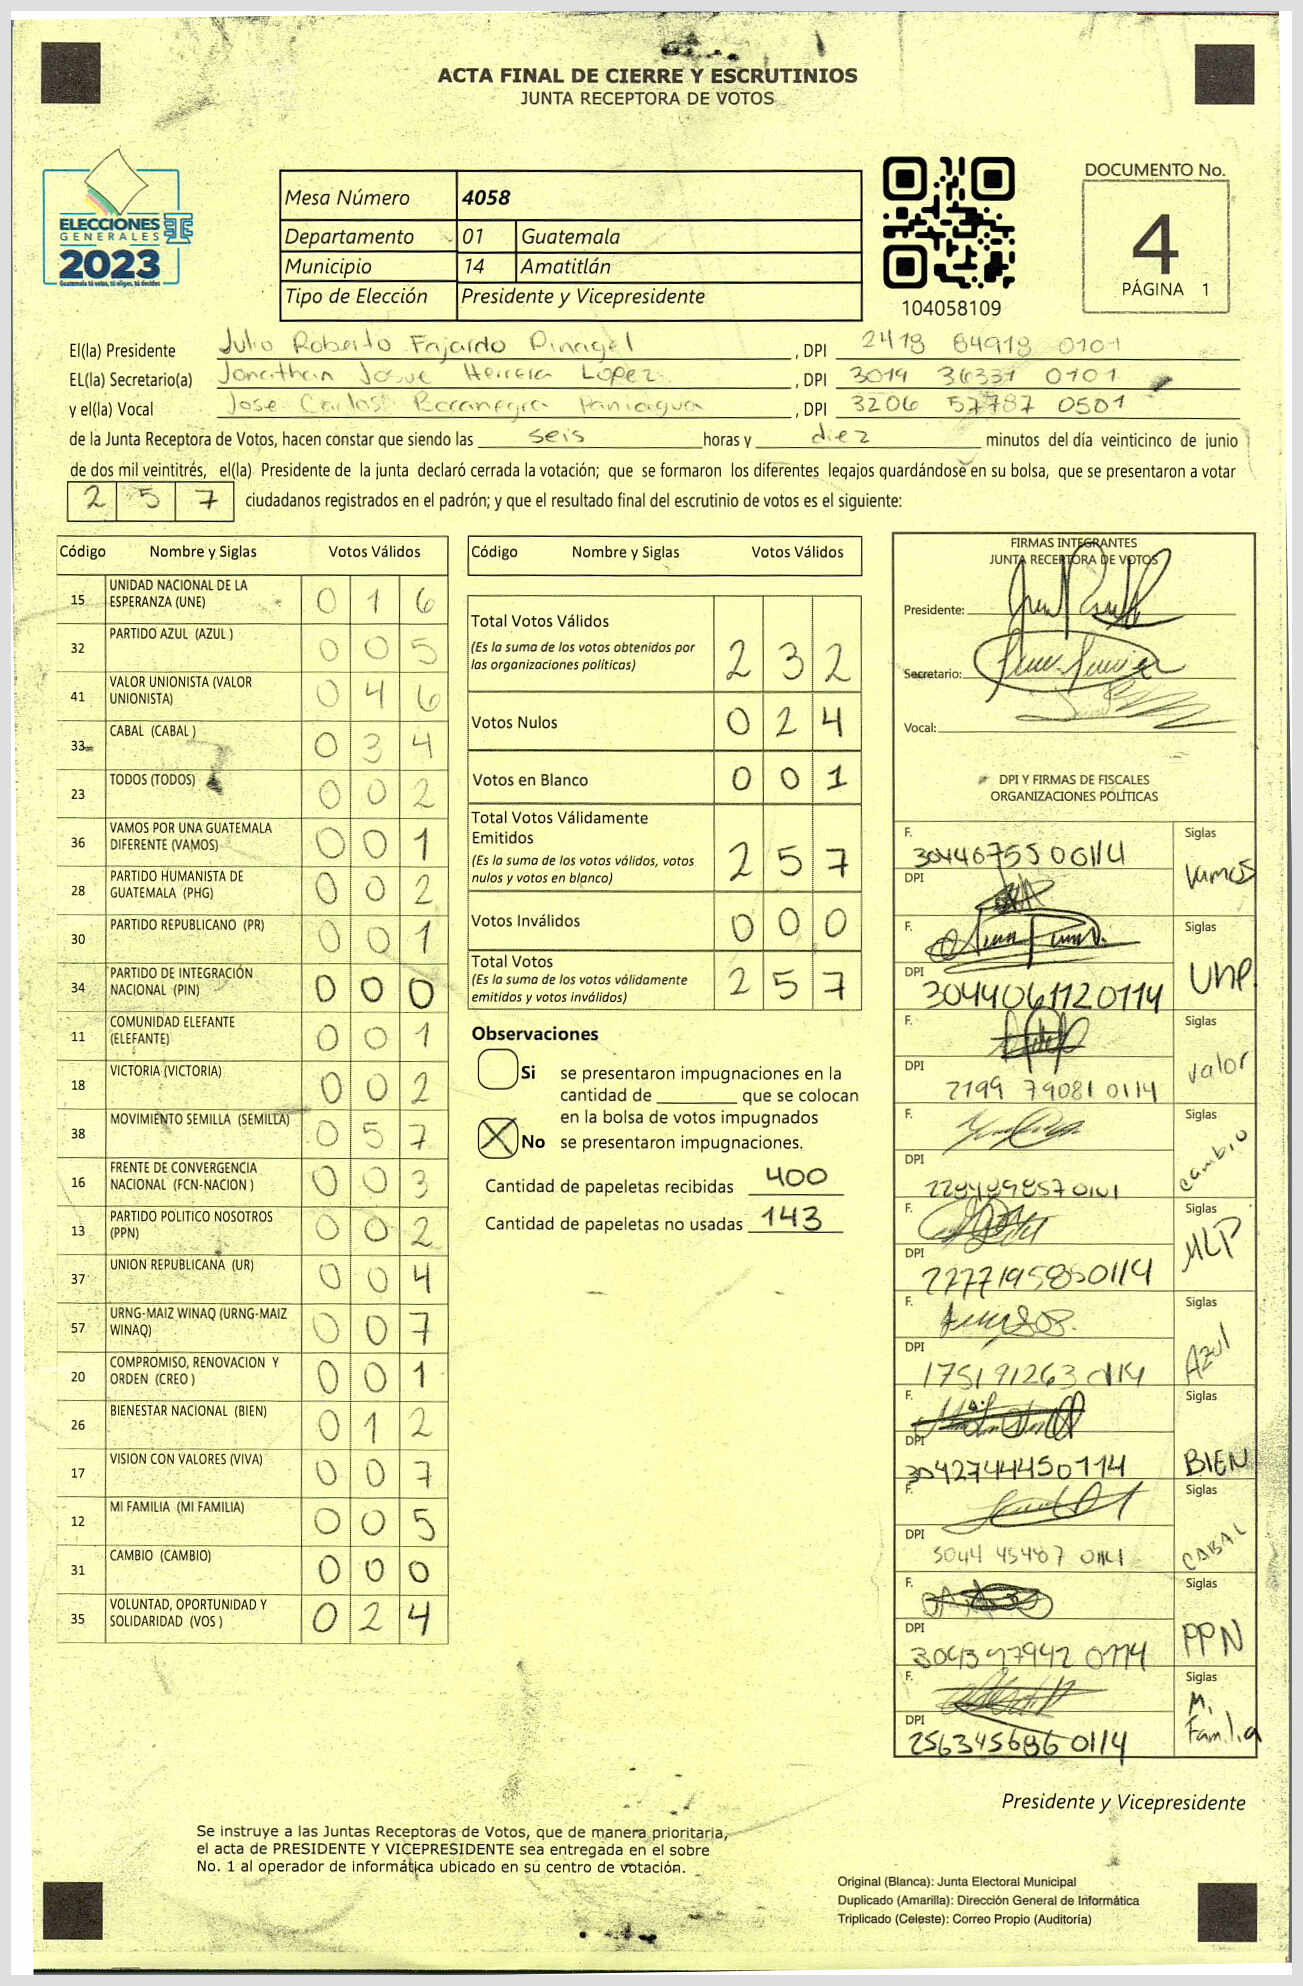 ACTA FINAL DE CIERRE Y ESCRUTINIOS
JUNTA RECEPTORA DE VOTOS
ELECCIONES
GENERALES
2023
Guatemala tú votas, tú eliges, tú decides
Mesa Número 4058
Departamento 01 Guatemala
Municipio 14 Amatitlán
Tipo de Elección Presidente y Vicepresidente
104058109
DOCUMENTO No.
4
PÁGINA 1
El(la) Presidente Julio Roberto Fajardo Pinagel, DPI 2418 64918 0101
EL(la) Secretario(a) Jonathan Josue Herrera Lopez, DPI 3019 36331 0101
y el(la) Vocal Jose Carlos Bocanegra Paniagua, DPI 3206 57787 0501
de la Junta Receptora de Votos, hacen constar que siendo las seis horas y diez minutos del día veinticinco de junio
de dos mil veintitrés, el(la) Presidente de la junta declaró cerrada la votación; que se formaron los diferentes legajos guardándose en su bolsa, que se presentaron a votar
2 5 7 ciudadanos registrados en el padrón; y que el resultado final del escrutinio de votos es el siguiente:
Código Nombre y Siglas Votos Válidos
15 UNIDAD NACIONAL DE LA ESPERANZA (UNE) 0 1 6
32 PARTIDO AZUL (AZUL ) 0 0 5
41 VALOR UNIONISTA (VALOR UNIONISTA) 0 4 6
33 CABAL (CABAL ) 0 3 4
23 TODOS (TODOS) 0 0 2
36 VAMOS POR UNA GUATEMALA DIFERENTE (VAMOS) 0 0 1
28 PARTIDO HUMANISTA DE GUATEMALA (PHG) 0 0 2
30 PARTIDO REPUBLICANO (PR) 0 0 1
34 PARTIDO DE INTEGRACIÓN NACIONAL (PIN) 0 0 0
11 COMUNIDAD ELEFANTE (ELEFANTE) 0 0 1
18 VICTORIA (VICTORIA) 0 0 2
38 MOVIMIENTO SEMILLA (SEMILLA) 0 5 7
16 FRENTE DE CONVERGENCIA NACIONAL (FCN-NACION ) 0 0 3
13 PARTIDO POLITICO NOSOTROS (PPN) 0 0 2
37 UNION REPUBLICANA (UR) 0 0 4
57 URNG-MAIZ WINAQ (URNG-MAIZ WINAQ) 0 0 7
20 COMPROMISO, RENOVACION Y ORDEN (CREO ) 0 0 1
26 BIENESTAR NACIONAL (BIEN) 0 1 2
17 VISION CON VALORES (VIVA) 0 0 7
12 MI FAMILIA (MI FAMILIA) 0 0 5
31 CAMBIO (CAMBIO) 0 0 0
35 VOLUNTAD, OPORTUNIDAD Y SOLIDARIDAD (VOS ) 0 2 4
Código Nombre y Siglas Votos Válidos
Total Votos Válidos 2 3 2
(Es la suma de los votos obtenidos por
las organizaciones políticas)
Votos Nulos 0 2 4
Votos en Blanco 0 0 1
Total Votos Válidamente
Emitidos 2 5 7
(Es la suma de los votos válidos, votos
nulos y votos en blanco)
Votos Inválidos 0 0 0
Total Votos 2 5 7
(Es la suma de los votos válidamente
emitidos y votos inválidos)
Observaciones
Si se presentaron impugnaciones en la
cantidad de ________ que se colocan
en la bolsa de votos impugnados
X No se presentaron impugnaciones.
Cantidad de papeletas recibidas 400
Cantidad de papeletas no usadas 143
FIRMAS INTEGRANTES
JUNTA RECEPTORA DE VOTOS
Presidente:
Secretario:
Vocal:
DPI Y FIRMAS DE FISCALES
ORGANIZACIONES POLÍTICAS
F. 304467550 0114 Siglas
DPI Vamos
F. Siglas
DPI 3044061120114 UNE
F. Siglas
DPI 2199 79081 0114 Valor
F. Siglas
DPI 2284898570101 Cambio
F. Siglas
DPI 2277195850114 MLP
F. Siglas
DPI 175191263 0114 Azul
F. Siglas
DPI 3042744450114 BIEN
F. Siglas
DPI 3044 45487 0114 CABAL
F. Siglas
DPI 304397942 0114 PPN
F. Siglas
DPI 256345686 0114 M. Familia
Presidente y Vicepresidente
Se instruye a las Juntas Receptoras de Votos, que de manera prioritaria,
el acta de PRESIDENTE Y VICEPRESIDENTE sea entregada en el sobre
No. 1 al operador de informática ubicado en su centro de votación.
Original (Blanca): Junta Electoral Municipal
Duplicado (Amarilla): Dirección General de Informática
Triplicado (Celeste): Correo Propio (Auditoría)